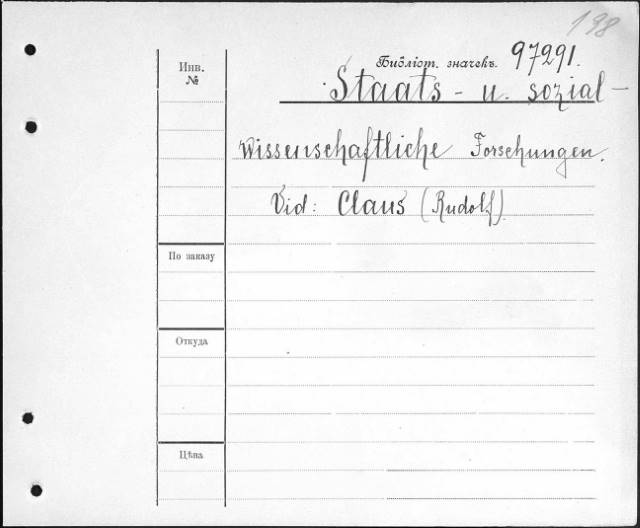 198
Инв. №
Библіот. значекъ. 97291.
Staats - u. sozial-
wissenschaftliche Forschungen.
Vid: Claus (Rudolf)
По заказу
Откуда
Цѣна